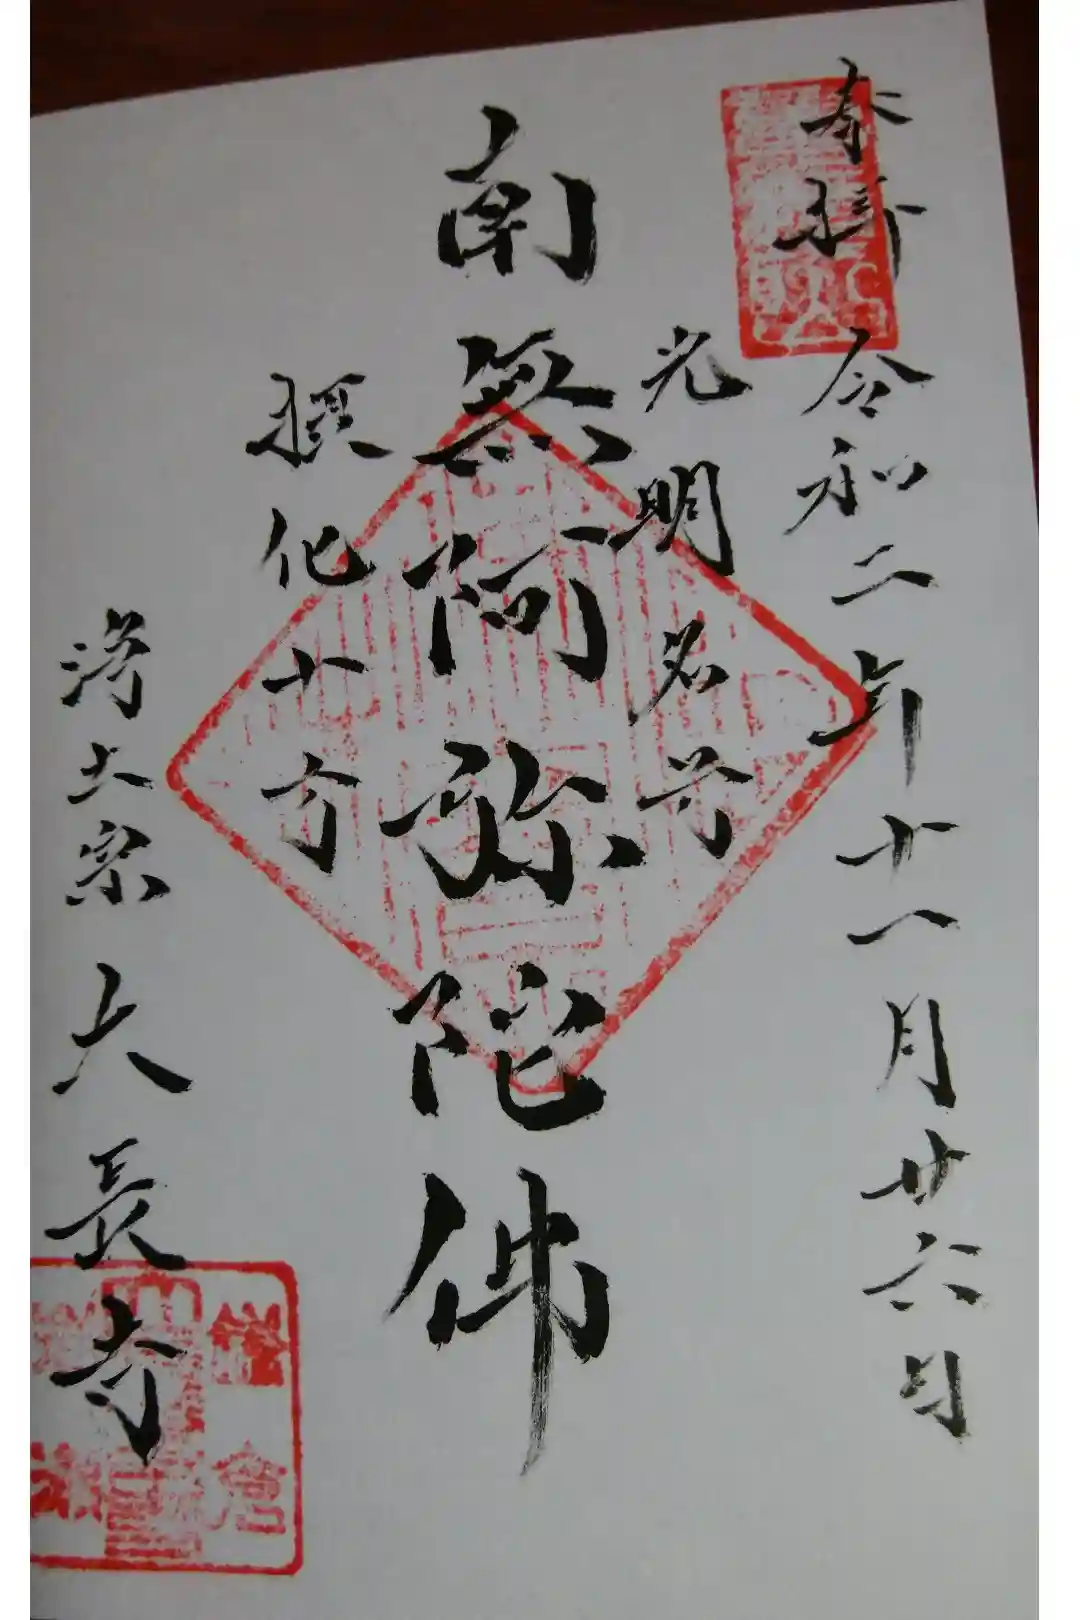 奉拝 令和二年十一月廿六日
光明名号
南無阿弥陀仏
摂化十方
浄土宗 大長寺
鎌倉